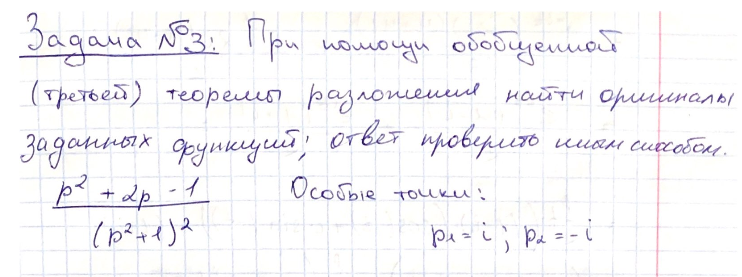 Задача №3: При помощи обобщенной
(третьей) теоремы разложения найти оригиналы
заданных функций; ответ проверить иным способом.
p² + 2p - 1 Особые точки:
(p²+1)² p₁ = i ; p₂ = -i